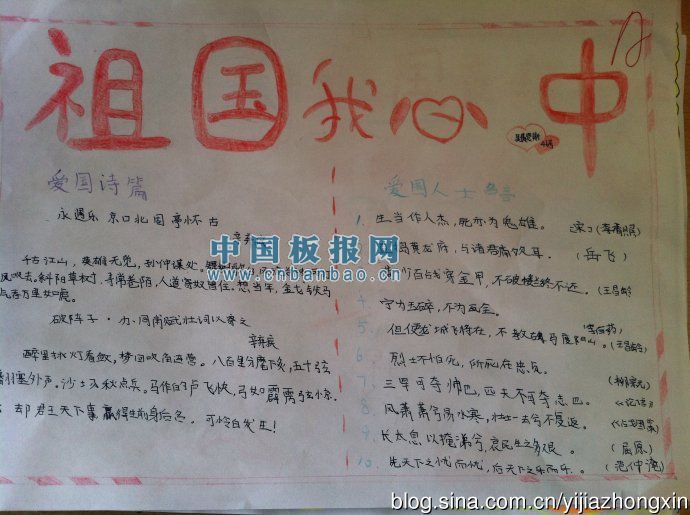 祖国我心中
爱国诗篇
永遇乐 京口北固亭怀古
辛弃
千古江山，英雄无觅，孙仲谋处。
风吹去。斜阳草树，寻常巷陌，人道寄奴曾住。想当年，金戈铁马
气吞万里如虎。
破阵子·为同甫赋壮词以寄之
辛弃疾
醉里挑灯看剑，梦回吹角连营。八百里分麾下炙，五十弦
翻塞外声。沙土秋点兵。马作的卢飞快，弓如霹雳弦惊。
却君王天下事 赢得生前身后名。可怜白发生！
爱国人士名言
1. 生当作人杰，死亦为鬼雄。 (李清照)
黄龙府，与诸君痛饮耳。 (岳飞)
百战穿金甲，不破楼兰终不还。(王昌龄)
4. 宁为玉碎，不为瓦全。
5. 但使龙城飞将在，不教胡马度阴山。(王昌龄)
6. 烈士不怕死，所死在忠贞。
(柳宗元)
7. 三军可夺帅也，匹夫不可夺志也。 《论语》
8. 风萧萧兮易水寒，壮士一去兮不复返。
9. 长太息以掩涕兮，哀民生之多艰。 (屈原)
10. 先天下之忧而忧，后天下之乐而乐。(范仲淹)
中国板报网
www.cnbanbao.cn
blog.sina.com.cn/yijiazhongxin